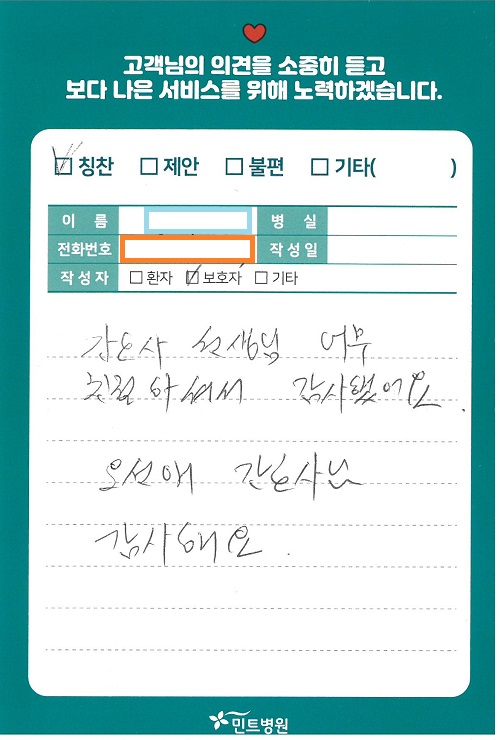 고객님의 의견을 소중히 듣고
보다 나은 서비스를 위해 노력하겠습니다.
칭찬 제안 불편 기타( )
이 름 병 실
전화번호 작성일
작성자 환자 보호자 기타
간호사 선생님 너무
친절하셔서 감사했어요.
오선애 간호사님
감사해요.
민트병원